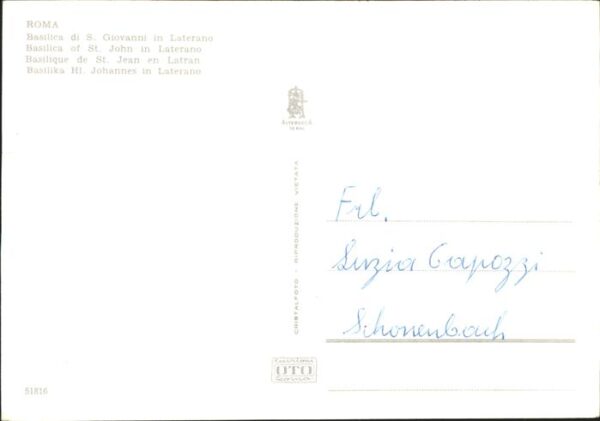 ROMA
Basilica di S. Giovanni in Laterano
Basilica of St. John in Laterano
Basilique de St. Jean en Latran
Basilika Hl. Johannes in Laterano
CRISTALFOTO - RIPRODUZIONE VIETATA
Frl.
Luzia Capozzi
Schonenbach
OTO
51816